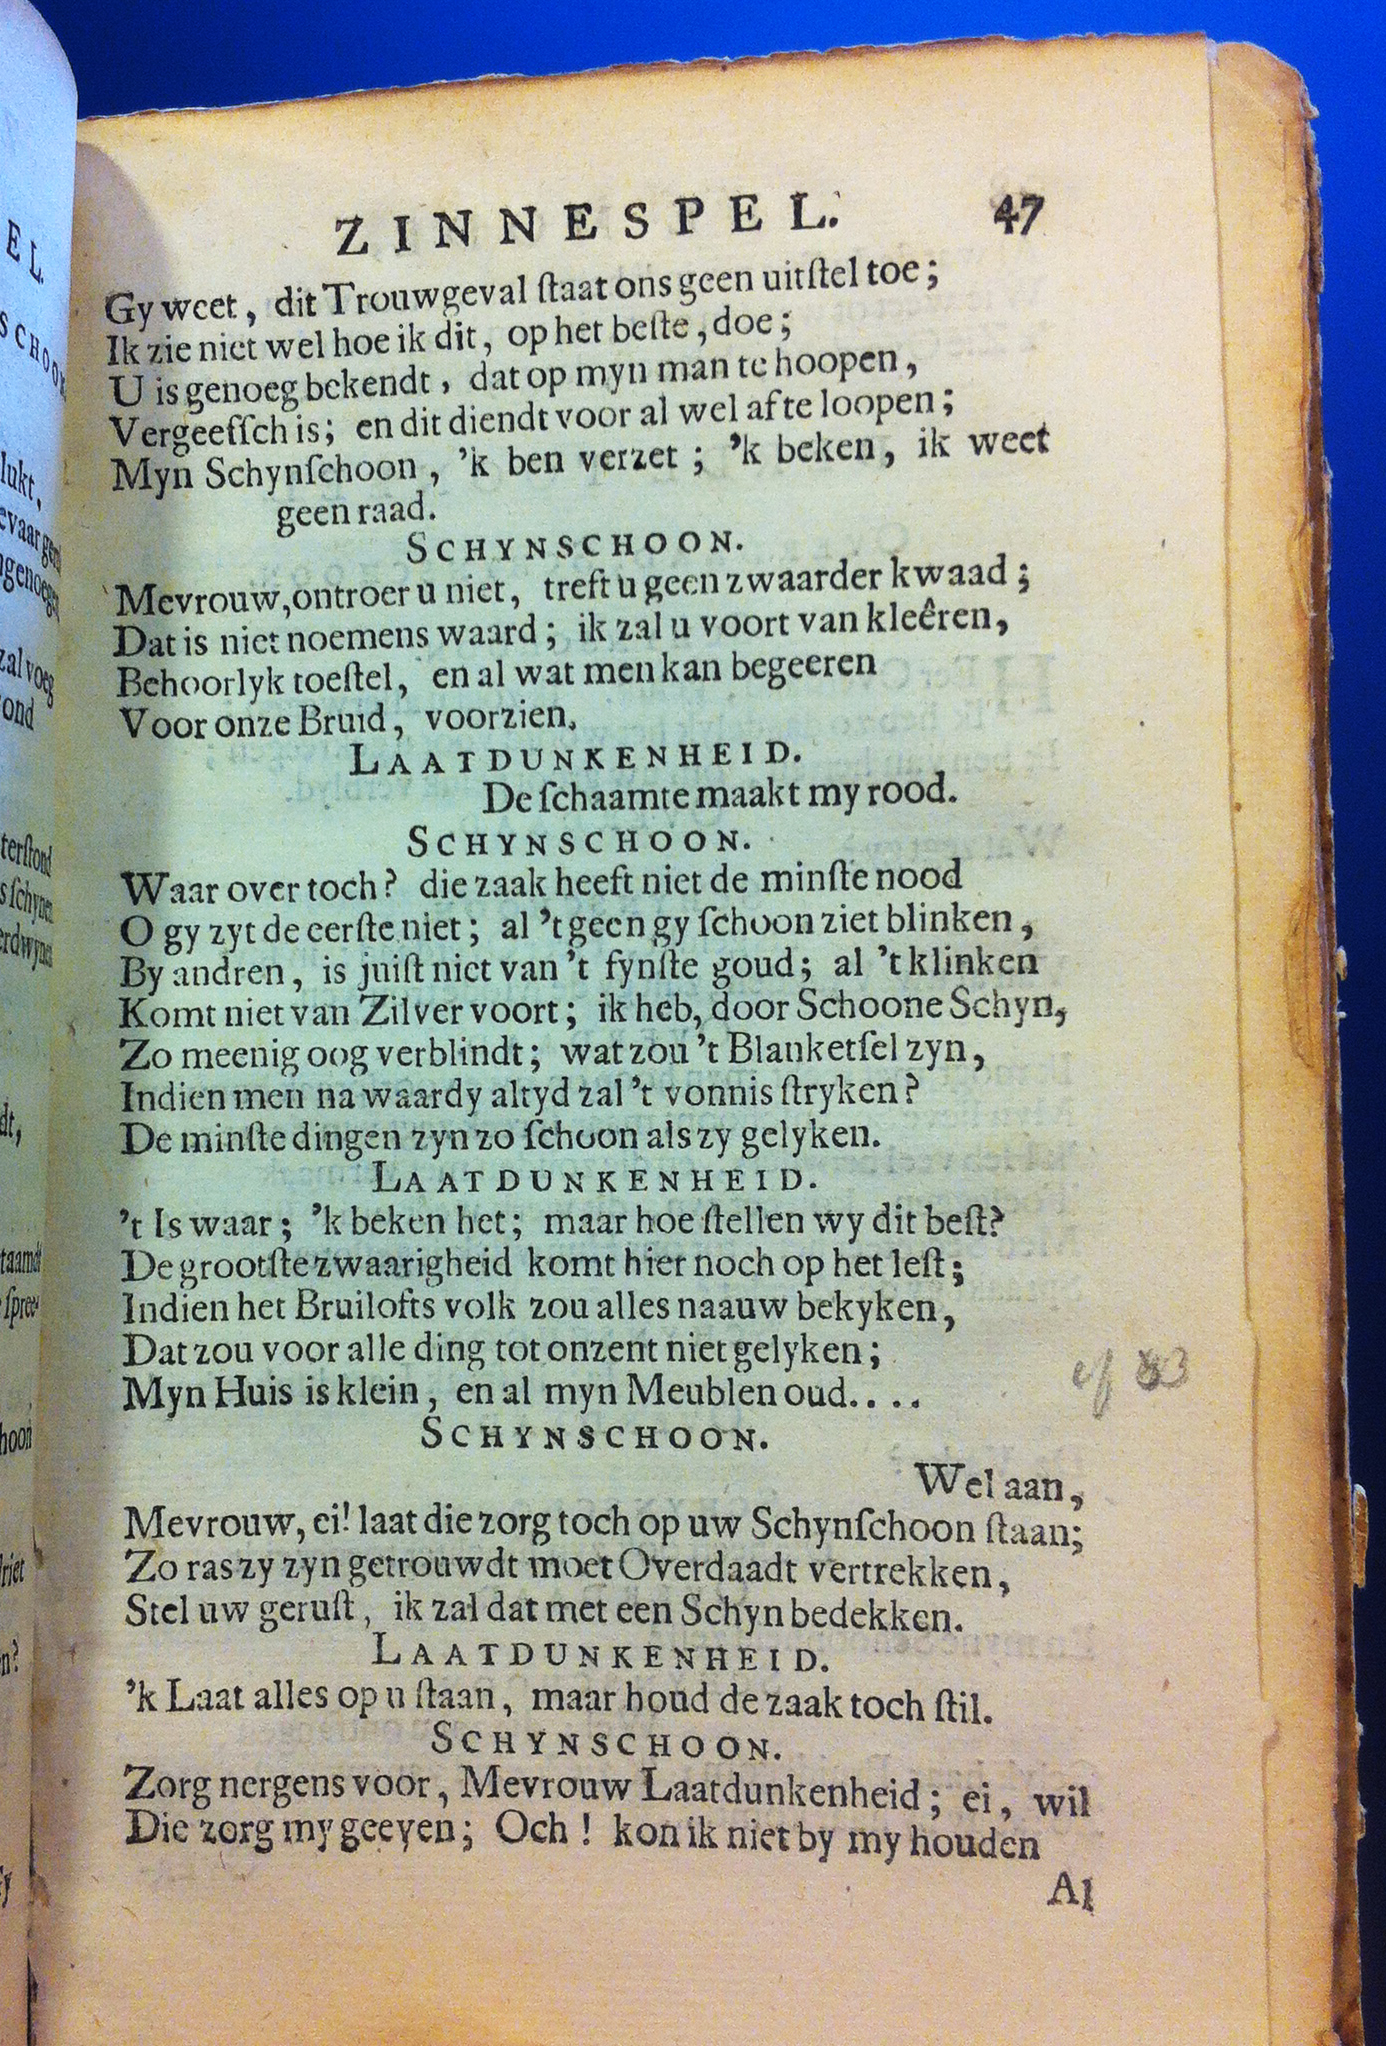 ZINNESPEL. 47
Gy weet, dit Trouwgeval ſtaat ons geen uitſtel toe;
Ik zie niet wel hoe ik dit, op het beſte, doe;
U is genoeg bekendt, dat op myn man te hoopen,
Vergeefſch is; en dit diendt voor al wel af te loopen;
Myn Schynſchoon, 'k ben verzet; 'k beken, ik weet
geen raad.
SCHYNSCHOON.
Mevrouw, ontroer u niet, treft u geen zwaarder kwaad;
Dat is niet noemens waard; ik zal u voort van kleêren,
Behoorlyk toeſtel, en al wat men kan begeeren
Voor onze Bruid, voorzien.
LAATDUNKENHEID.
De ſchaamte maakt my rood.
SCHYNSCHOON.
Waar over toch? die zaak heeft niet de minſte nood
O gy zyt de eerſte niet; al 't geen gy ſchoon ziet blinken,
By andren, is juiſt niet van 't fynſte goud; al 't klinken
Komt niet van Zilver voort; ik heb, door Schoone Schyn,
Zo meenig oog verblindt; wat zou 't Blanketſel zyn,
Indien men na waardy altyd zal 't vonnis ſtryken?
De minſte dingen zyn zo ſchoon als zy gelyken.
LAATDUNKENHEID.
't Is waar; 'k beken het; maar hoe ſtellen wy dit beſt?
De grootſte zwaarigheid komt hier noch op het leſt;
Indien het Bruilofts volk zou alles naauw bekyken,
Dat zou voor alle ding tot onzent niet gelyken;
Myn Huis is klein, en al myn Meublen oud....
SCHYNSCHOON.
Wel aan,
Mevrouw, ei! laat die zorg toch op uw Schynſchoon ſtaan;
Zo ras zy zyn getrouwdt moet Overdaadt vertrekken,
Stel uw geruſt, ik zal dat met een Schyn bedekken.
LAATDUNKENHEID.
'k Laat alles op u ſtaan, maar houd de zaak toch ſtil.
SCHYNSCHOON.
Zorg nergens voor, Mevrouw Laatdunkenheid; ei, wil
Die zorg my geeven; Och! kon ik niet by my houden
Al